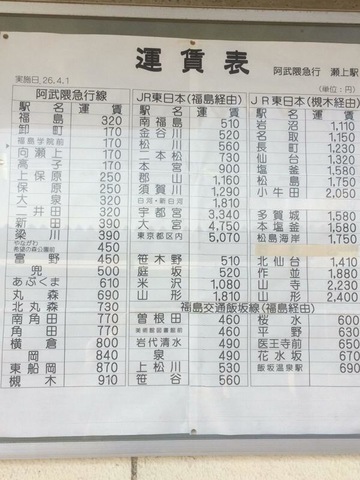 運賃表
阿武隈急行 瀬上駅
実施日.26.4.1
(単位:円)
阿武隈急行線
駅名 運賃
福島 320
卸町 170
福島学院前 170
向瀬上 170
高子 170
上保原 250
保原 250
大泉 320
二井田 320
新田 390
梁川 390
やながわ
希望の森公園前 450
富野 450
兜 500
あぶくま 610
丸森 690
北丸森 730
南角田 770
角田 770
横倉 800
岡 840
東船岡 870
槻木 910
JR東日本(福島経由)
駅名 運賃
南福島 510
金谷川 520
松川 560
二本松 730
本宮 900
郡山 1,160
須賀川 1,290
白河・新白河 1,810
宇都宮 3,340
大宮 4,750
東京都区内 5,070
笹木野 510
庭坂 520
米沢 1,080
山形 1,810
JR東日本(槻木経由)
駅名 運賃
岩沼 1,110
名取 1,150
長町 1,230
仙台 1,320
塩釜 1,580
松島 1,750
小牛田 2,050
多賀城 1,580
本塩釜 1,580
松島海岸 1,750
北仙台 1,410
作並 1,880
山寺 2,230
山形 2,400
福島交通飯坂線(福島経由)
曽根田 460
美術館図書館前 460
岩代清水 460
泉 490
上松川 530
笹谷 560
桜水 600
平野 630
医王寺前 650
花水坂 670
飯坂温泉駅 690